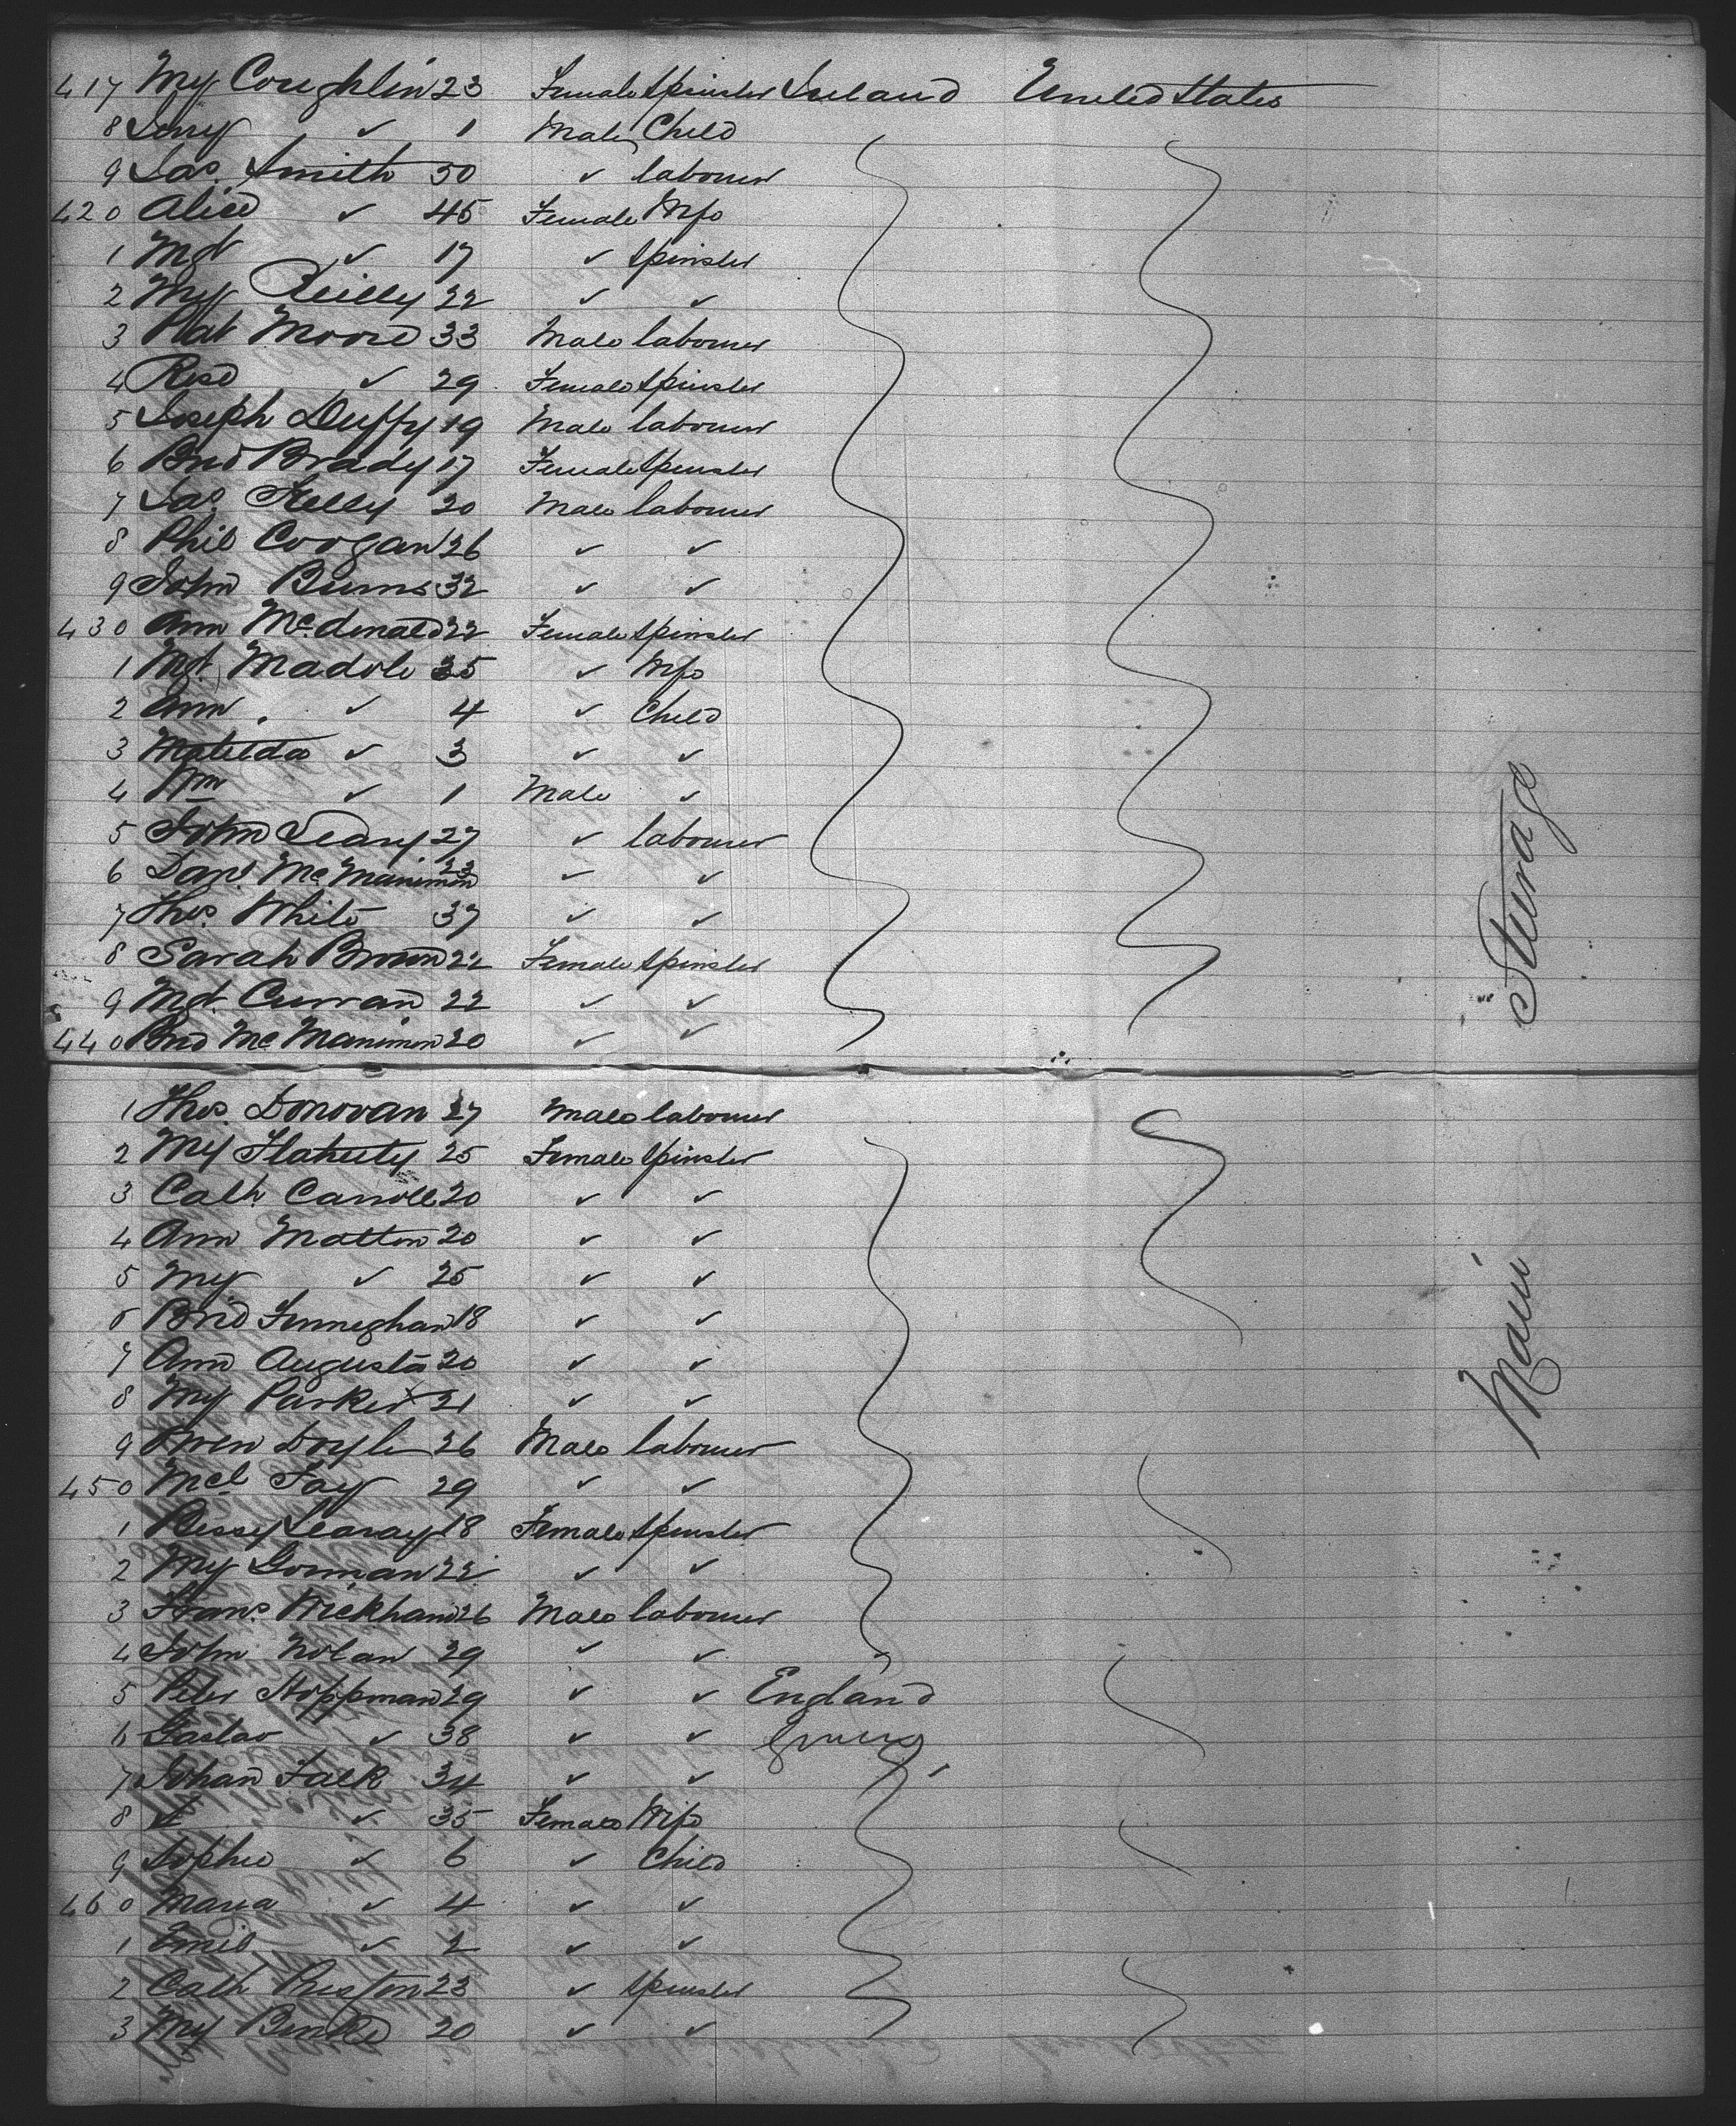 417 My Coughlin 23 Female Spinster Ireland United States
8 Jeny ✓ 1 Male Child
9 Jas. Smith 50 ✓ labourer
420 Alice ✓ 45 Female Wife
1 Mgt ✓ 17 ✓ Spinster
2 My Reilly 22 ✓ ✓
3 Pat Moore 33 Male labourer
4 Rose ✓ 29 Female Spinster
5 Joseph Duffy 19 Male labourer
6 Brid Brady 17 Female Spinster
7 Jas. Kelly 20 Male labourer
8 Phil Coogan 26 ✓ ✓
9 John Burns 32 ✓ ✓
430 Ann Mcdonald 22 Female Spinster
1 Mgt Madole 35 ✓ Wife
2 Ann ✓ 4 ✓ Child
3 Matilda ✓ 3 ✓ ✓
4 Wm ✓ 1 Male ✓
5 John Leary 27 ✓ labourer
6 Danl McManimon 23 ✓ ✓
7 Thos. White 37 ✓ ✓
8 Sarah Brown 22 Female Spinster
9 Mgt Curran 22 ✓ ✓
440 Brid McManimon 20 ✓ ✓
Steerage
1 Thos. Donovan 27 Male labourer
2 My Flaherty 25 Female Spinster
3 Cath Carroll 20 ✓ ✓
4 Ann Matton 20 ✓ ✓
5 My ✓ 25 ✓ ✓
6 Brid Finneghan 18 ✓ ✓
7 Ann Augusta 20 ✓ ✓
8 My Parker 21 ✓ ✓
9 Owen Doyle 26 Male labourer
450 Mcl Fay 29 ✓ ✓
1 Bessy Learay 18 Female Spinster
2 My Gorman 22 ✓ ✓
3 Frans. Wickham 26 Male labourer
4 John Nolan 29 ✓ ✓
5 Peter Hoppman 29 ✓ ✓ England
6 Gustav ✓ 38 ✓ ✓
7 Johan Falk 34 ✓ ✓
8 ✓ 35 Female Wife
9 Sophie ✓ 6 ✓ Child
460 Maria ✓ 4 ✓ ✓
1 Emil ✓ 2 ✓ ✓
2 Cath Preston 23 ✓ Spinster
3 My 20 ✓ ✓
Main